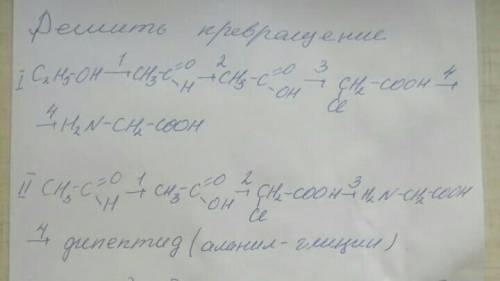 Решить превращение
I C₂H₅-OH →1 CH₃-C(=O)-H →2 CH₃-C(=O)-OH →3 CH₂(Cl)-COOH →4
→4 H₂N-CH₂-COOH
II CH₃-C(=O)-H →1 CH₃-C(=O)-OH →2 CH₂(Cl)-COOH →3 H₂N-CH₂-COOH
→4 дипептид (аланил-глицин)